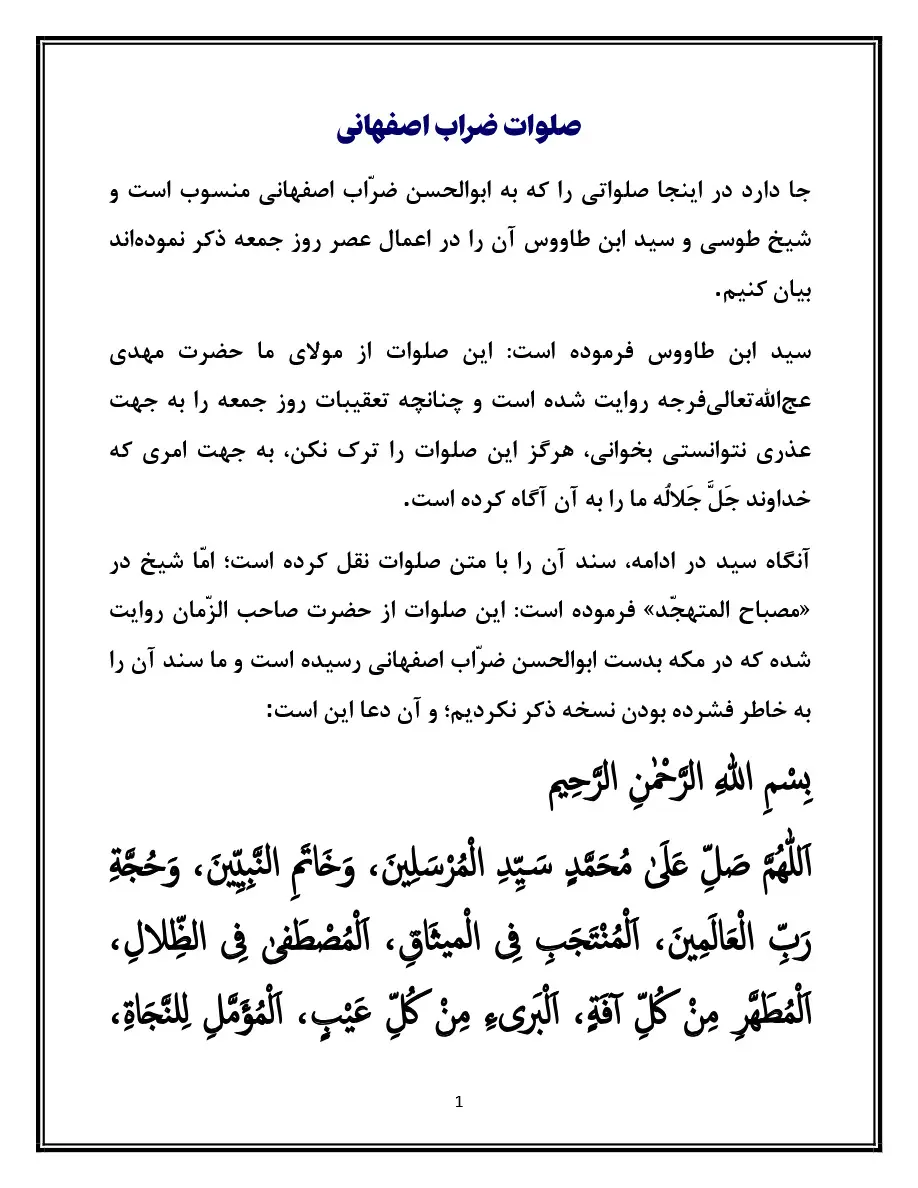 صلوات ضراب اصفهانی
جا دارد در اینجا صلواتی را که به ابوالحسن ضرّاب اصفهانی منسوب است و
شیخ طوسی و سید ابن طاووس آن را در اعمال عصر روز جمعه ذکر نموده‌اند
بیان کنیم.
سید ابن طاووس فرموده است: این صلوات از مولای ما حضرت مهدی
عج‌الله‌تعالی‌فرجه روایت شده است و چنانچه تعقیبات روز جمعه را به جهت
عذری نتوانستی بخوانی، هرگز این صلوات را ترک نکن، به جهت امری که
خداوند جَلَّ جَلالُه ما را به آن آگاه کرده است.
آنگاه سید در ادامه، سند آن را با متن صلوات نقل کرده است؛ امّا شیخ در
«مصباح المتهجّد» فرموده است: این صلوات از حضرت صاحب الزّمان روایت
شده که در مکه بدست ابوالحسن ضرّاب اصفهانی رسیده است و ما سند آن را
به خاطر فشرده بودن نسخه ذکر نکردیم؛ و آن دعا این است:
بِسْمِ اللهِ الرَّحْمٰنِ الرَّحِیمِ
اَللّٰهُمَّ صَلِّ عَلَىٰ مُحَمَّدٍ سَيِّدِ الْمُرْسَلِينَ، وَخَاتَمِ النَّبِيِّينَ، وَحُجَّةِ
رَبِّ الْعَالَمِينَ، اَلْمُنْتَجَبِ فِى الْميثَاقِ، اَلْمُصْطَفىٰ فِى الظِّلالِ،
اَلْمُطَهَّرِ مِنْ كُلِّ آفَةٍ، اَلْبَرىءِ مِنْ كُلِّ عَيْبٍ، اَلْمُؤَمَّلِ لِلنَّجَاةِ،
1